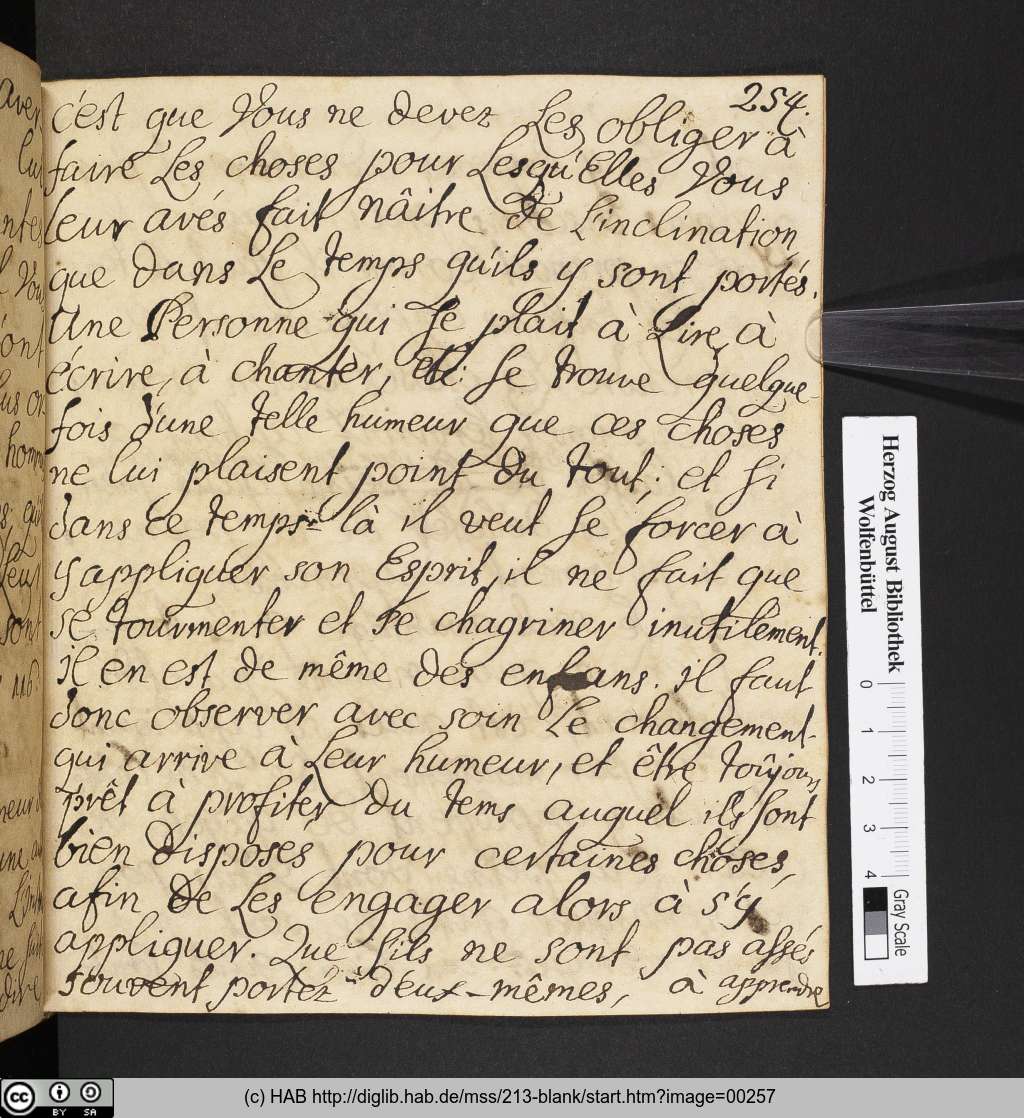 254.
c'est que Vous ne devez Les obliger à
faire Les choses pour Lesqu'Elles Vous
leur avés fait nâitre de L'inclination
que dans Le temps qu'ils y sont portés.
Une Personne qui se plait à Lire, à
écrire, à chanter, etc. se trouve quelque-
fois d'une telle humeur que ces choses
ne lui plaisent point du tout; et si
dans ce temps-là il veut se forcer à
y appliquer son Esprit, il ne fait que
se tourmenter et se chagriner inutilement.
il en est de même des enfans. il faut
donc observer avec soin Le changement
qui arrive à Leur humeur, et être toûjours
prêt à profiter du tems auquel ils sont
bien disposés pour certaines choses,
afin de Les engager alors à s'y
appliquer. Que s'ils ne sont pas assés
souvent portéz d'eux-mêmes, à apprendre
Herzog August Bibliothek
Wolfenbüttel
0 1 2 3 4
Gray Scale
cc BY SA
(c) HAB http://diglib.hab.de/mss/213-blank/start.htm?image=00257